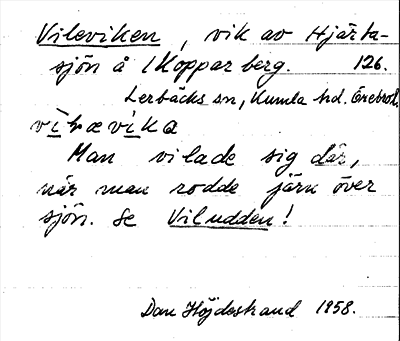 Vileviken, vik av Hjärta-
sjön å 1 Kopparberg. 126.
Lerbäcks sn, Kumla hd. Örebro l.
Man vilade sig där,
när man rodde järn över
sjön. Se Viludden!
Dan Höjdestrand 1958.